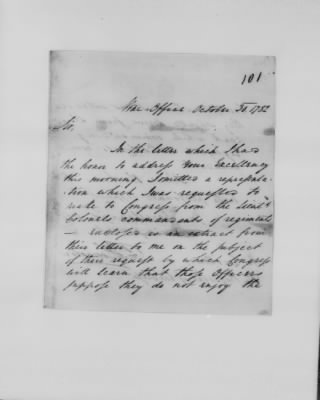 101
War-Office October 30. 1782
Sir,
In the letter which I had
the honor to address Your Excellency
this morning, I omitted a representa-
tion which I was requested to
make to Congress from the Lieut.
Colonels commandants of regiments
— enclosed is an extract from
their letter to me on the subject
of their request by which Congress
will learn that those Officers
suppose they do not enjoy the